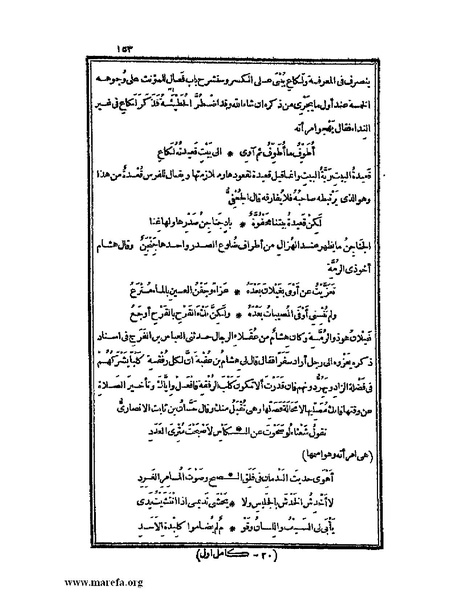 ١٥٣
ينصرف في المعرفة ولكاع يبنى على الكسر وسنشرح باب فعال للمؤنث على وجوهه
الخمسة عند أول ما يجري من ذكره ان شاء الله وقد اضطر الحطيئة فذكر لكاع في غير
النداء فقال يهجو امرأته
أُطوف ما أُطوف ثم آوي * الى بيت قعيدته لكاع
قعيدة البيت ربة البيت وانما قيل قعيدة لقعودها وملازمتها ويقال للفرس قعدة من هذا
وهو الذي يرتبطه صاحبه فلا يفارقه قال الجعفي
لكن قعيدة بيتنا مجفوة * باد جناجن صدرها ولها غنا
الجناجن ما يظهر عند الهزال من أطراف ضلوع الصدر واحدها جنجن وقال هشام
أخو ذي الرمة
تعزيت عن أوفى بغيلان بعده * عزاء وجفن العين بالماء مترع
ولم تنسني أوفى المصيبات بعده * ولكن نكء القرح بالقرح أوجع
غيلان هو ذو الرمة وكان هشام من عقلاء الرجال حدثني العباس بن الفرج في اسناد
ذكره يعزوه الى رجل أراد سفرا فقال قال لي هشام بن عقبة ان لكل رفقة كلبا يشركهم
في فضلة الزاد ويهر دونهم فان قدرت ألا تكون كلب الرفقة فافعل واياك وتأخير الصلاة
عن وقتها فانك مصليها لا محالة فصلها وهي تقبل منك وقال حسان بن ثابت الانصاري
تقول شعثاء لو صحوت عن الكاس لاصبحت مثري العدد
(هي امرأته وهو اسمها)
أهوى حديث الندمان في فلق الصبح وصوت المسامر الغرد
لا أخدش الخدش بالجليس ولا * يخشى نديمي اذا انتشيت يدي
يأبى لي السيف واللسان وقو * م لم يضاموا كلبدة الاسد
(٢٠ - كامل اول)
www.marefa.org